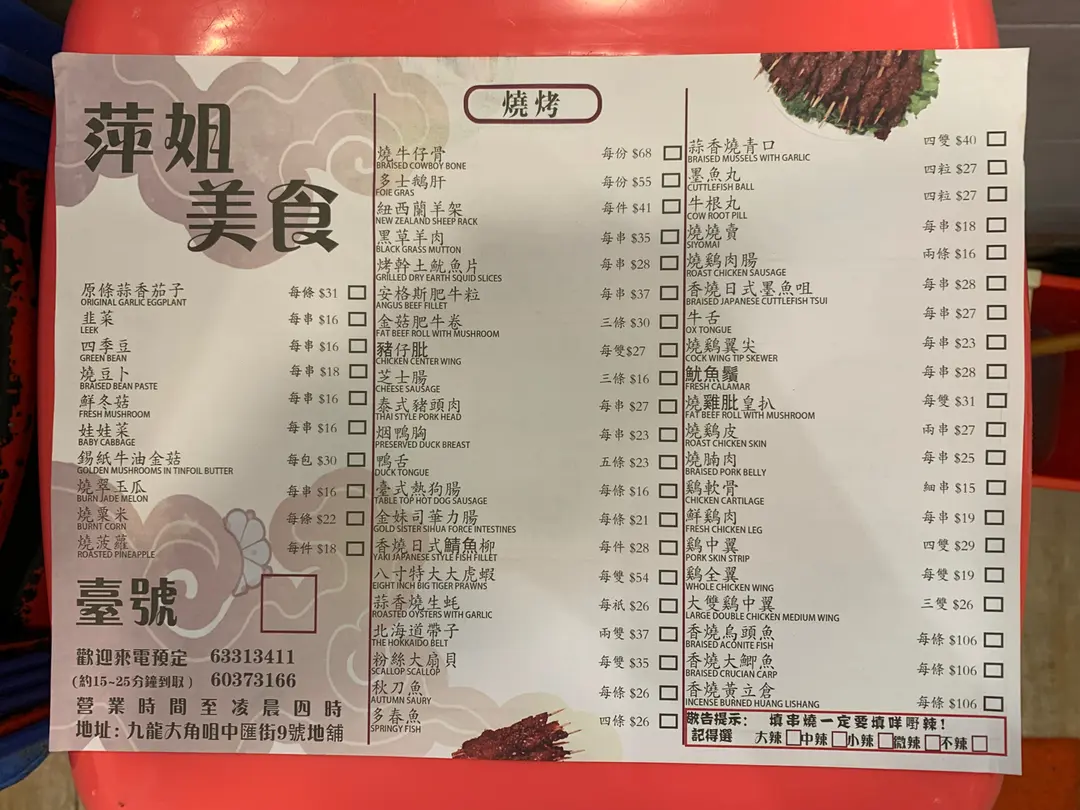 萍姐
美食
原條蒜香茄子 每條 $31
ORIGINAL GARLIC EGGPLANT
韭菜 每串 $16
LEEK
四季豆 每串 $16
GREEN BEAN
燒豆卜 每串 $18
BRAISED BEAN PASTE
鮮冬菇 每串 $16
FRESH MUSHROOM
娃娃菜 每串 $16
BABY CABBAGE
錫紙牛油金菇 每包 $30
GOLDEN MUSHROOMS IN TINFOIL BUTTER
燒翠玉瓜 每串 $16
BURN JADE MELON
燒粟米 每條 $22
BURNT CORN
燒菠蘿 每件 $18
ROASTED PINEAPPLE
臺號
歡迎來電預定 63313411
(約15~25分鐘到取) 60373166
營業時間至凌晨四時
地址: 九龍大角咀中匯街9號地舖
燒烤
燒牛仔骨 每份 $68
BRAISED COWBOY BONE
多士鵝肝 每份 $55
FOIE GRAS
紐西蘭羊架 每件 $41
NEW ZEALAND SHEEP RACK
黑草羊肉 每串 $35
BLACK GRASS MUTTON
烤幹土魷魚片 每串 $28
GRILLED DRY EARTH SQUID SLICES
安格斯肥牛粒 每串 $37
ANGUS BEEF FILLET
金菇肥牛卷 三條 $30
FAT BEEF ROLL WITH MUSHROOM
豬仔肶 每雙$27
CHICKEN CENTER WING
芝士腸 三條 $16
CHEESE SAUSAGE
泰式豬頭肉 每串 $27
THAI STYLE PORK HEAD
烟鴨胸 每串 $23
PRESERVED DUCK BREAST
鴨舌 五條 $23
DUCK TONGUE
臺式熱狗腸 每條 $16
TABLE TOP HOT DOG SAUSAGE
金妹司華力腸 每條 $21
GOLD SISTER SIHUA FORCE INTESTINES
香燒日式鯖魚柳 每件 $28
YAKI JAPANESE STYLE FISH FILLET
八寸特大大虎蝦 每雙 $54
EIGHT INCH BIG TIGER PRAWNS
蒜香燒生蚝 每祇 $26
ROASTED OYSTERS WITH GARLIC
北海道帶子 兩雙 $37
THE HOKKAIDO BELT
粉絲大扇貝 每雙 $35
SCALLOP SCALLOP
秋刀魚 每條 $26
AUTUMN SAURY
多春魚 四條 $26
SPRINGY FISH
蒜香燒青口 四雙 $40
BRAISED MUSSELS WITH GARLIC
墨魚丸 四粒 $27
CUTTLEFISH BALL
牛根丸 四粒 $27
COW ROOT PILL
燒燒賣 每串 $18
SIYOMAI
燒鷄肉腸 兩條 $16
ROAST CHICKEN SAUSAGE
香燒日式墨魚咀 每串 $28
BRAISED JAPANESE CUTTLEFISH TSUI
牛舌 每串 $27
OX TONGUE
燒鷄翼尖 每串 $23
COCK WING TIP SKEWER
魷魚鬚 每串 $28
FRESH CALAMAR
燒雞肶皇扒 每雙 $31
FAT BEEF ROLL WITH MUSHROOM
燒鷄皮 兩串 $27
ROAST CHICKEN SKIN
燒腩肉 每串 $25
BRAISED PORK BELLY
鷄軟骨 細串 $15
CHICKEN CARTILAGE
鮮鷄肉 每串 $19
FRESH CHICKEN LEG
鷄中翼 四雙 $29
PORK SKIN STRIP
鷄全翼 每雙 $19
WHOLE CHICKEN WING
大雙鷄中翼 三雙 $26
LARGE DOUBLE CHICKEN MEDIUM WING
香燒烏頭魚 每條 $106
BRAISED ACONITE FISH
香燒大鯽魚 每條 $106
BRAISED CRUCIAN CARP
香燒黃立倉 每條 $106
INCENSE BURNED HUANG LISHANG
敬告提示: 填串燒一定要填咩嘢辣!
記得選 大辣 中辣 小辣 微辣 不辣